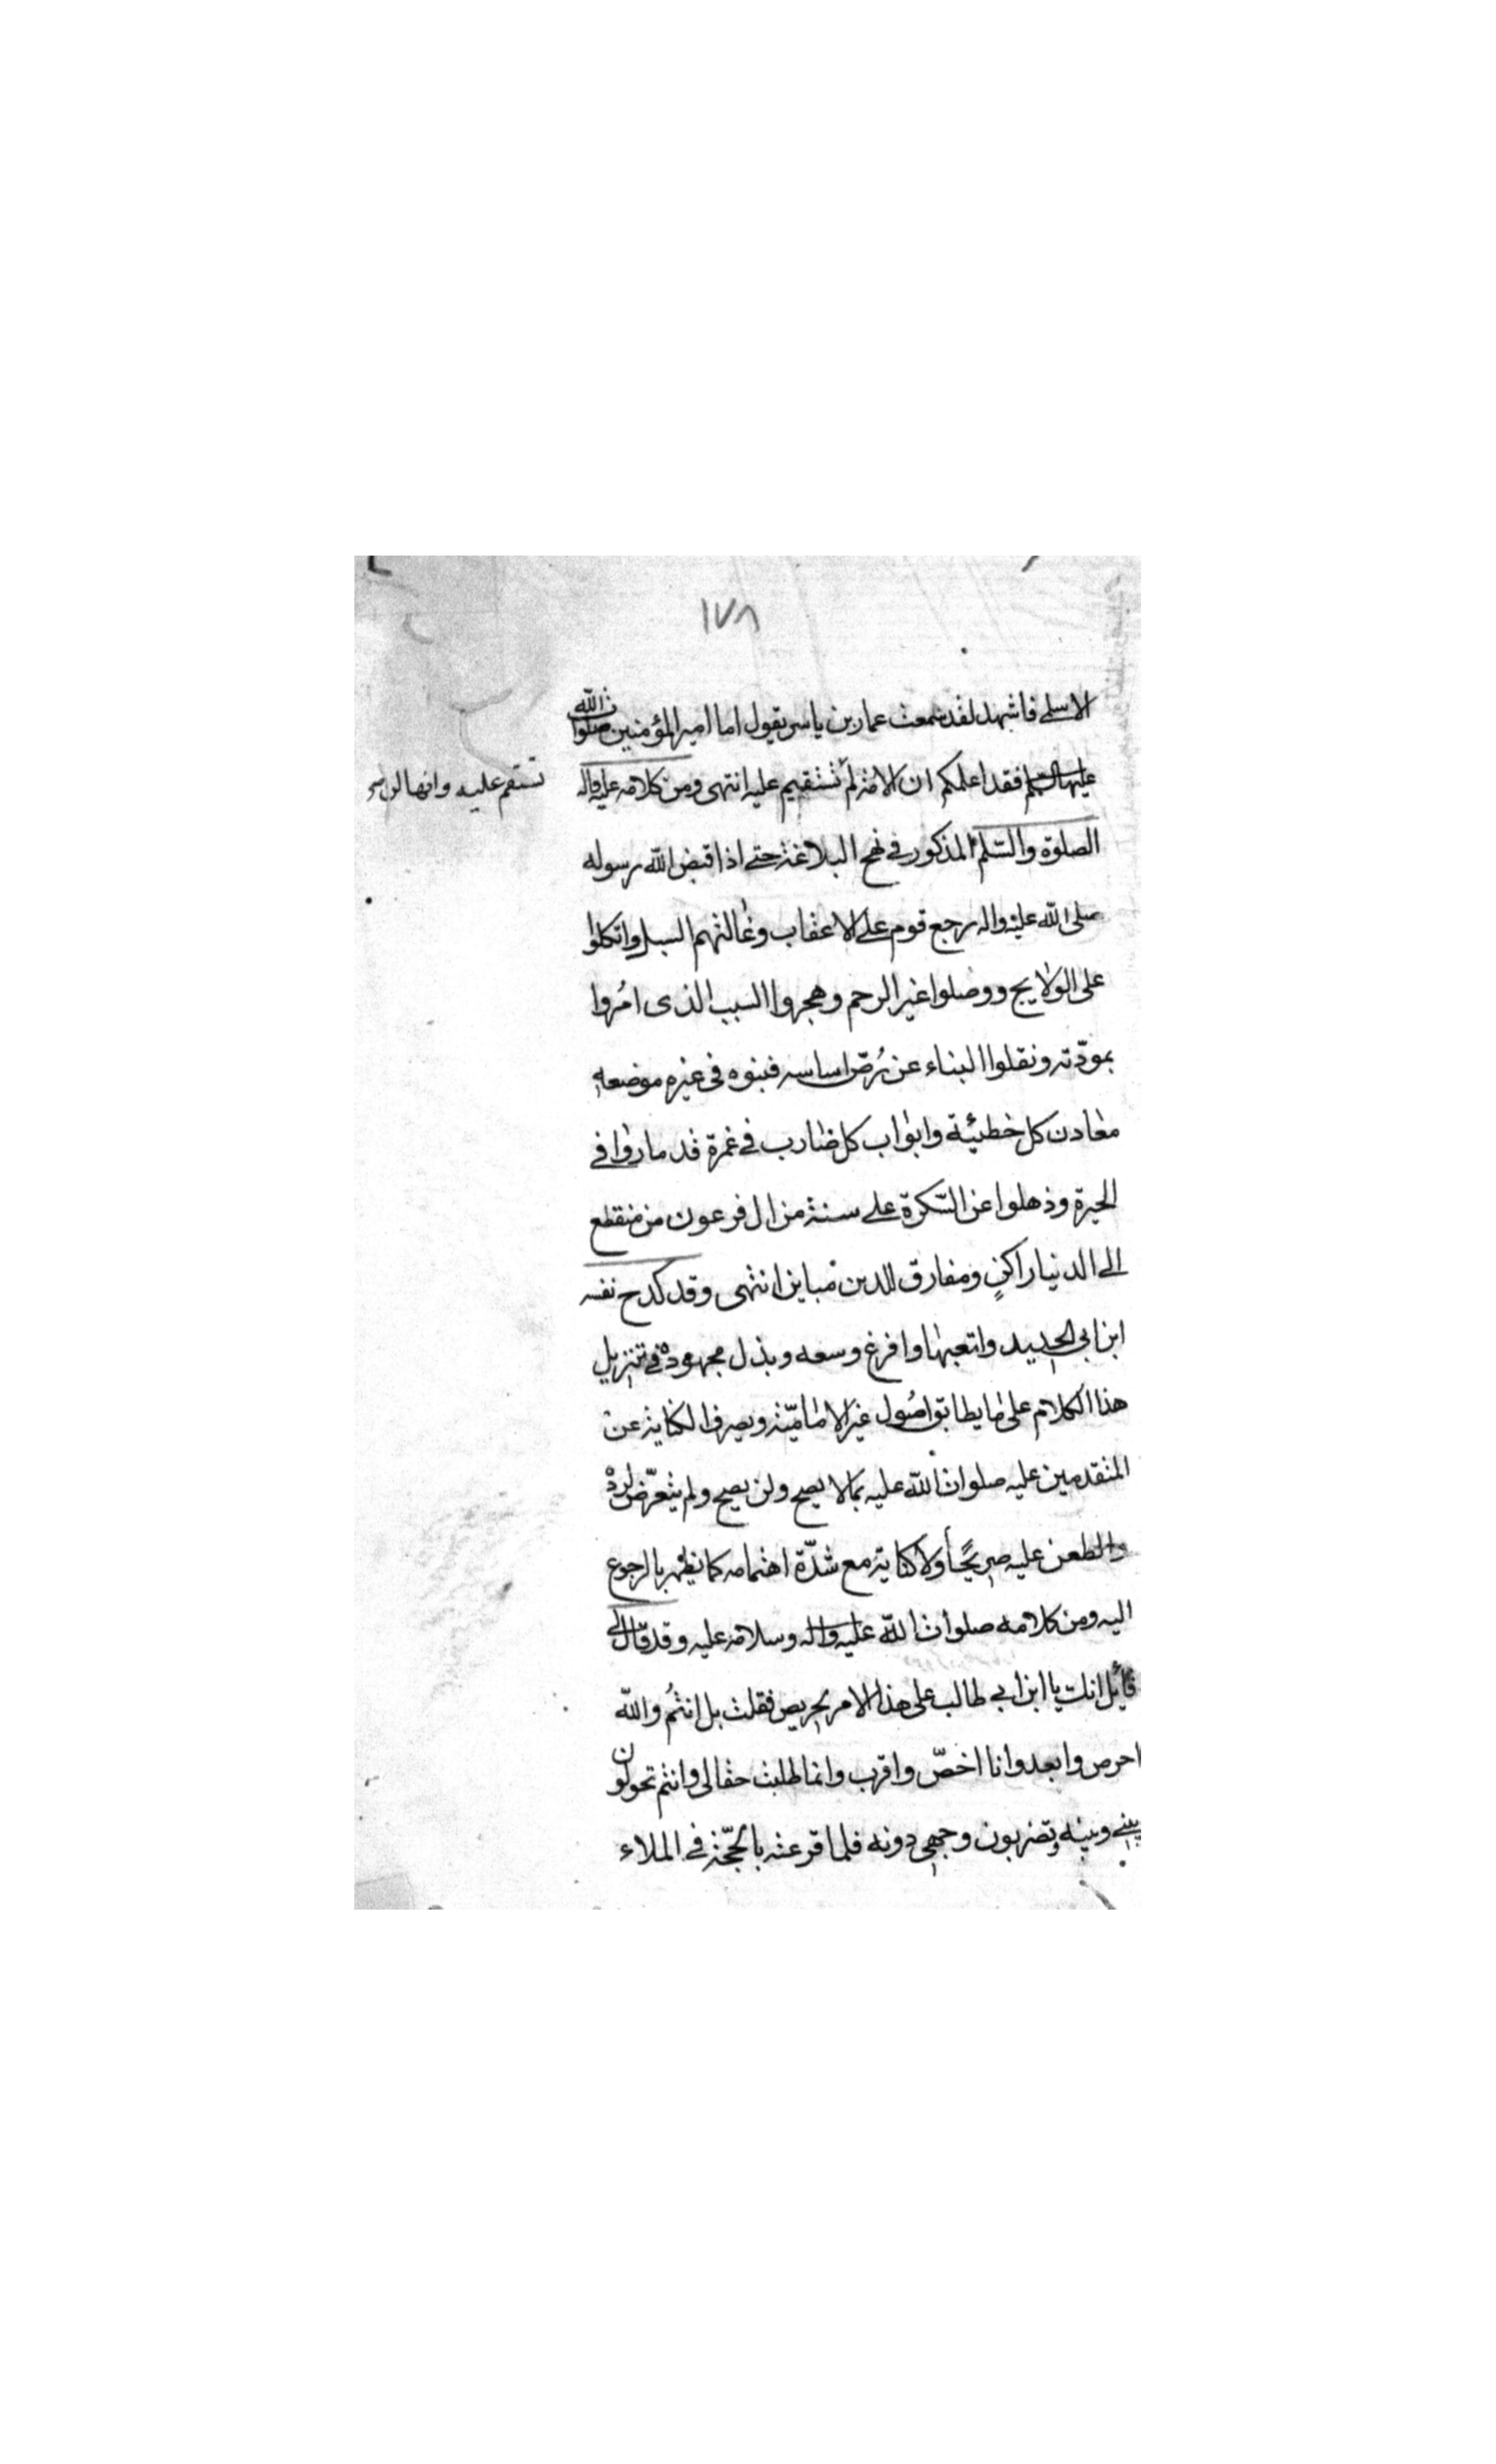 ١٧٨
الاسلمى فاشهد لقد سمعت عمار بن ياسر يقول اما امير المؤمنين صلوات الله
عليه السلم فقد اعلمكم ان الامة لم تستقيم عليه انتهى ومن كلامه عليه واله
تستقم عليه وانها لن
الصلوة والسلم المذكور في نهج البلاغة حتى اذا قبض الله رسوله
صلى الله عليه واله رجع قوم على الاعقاب وغالتهم السبل واتكلوا
على الولايج ووصلوا غير الرحم وهجروا السبب الذى امُروا
بمودّته ونقلوا البناء عن رُصّ اساسه فبنوه فى غيره موضعه
معادن كل خطيئة وابواب كل ضارب في غمرة قد ماروا في
الحيرة وذهلوا عن السّكرة على سنة من ال فرعون من منقطع
الى الدنيا راكنٍ ومفارق للدين مباين انتهى وقد كدح نفسه
ابن ابي الحديد واتعبها وافرغ وسعه وبذل مجهوده في تنزيل
هذا الكلام على ما يطابق اصُول غير الاماميّة ويصرف الكناية عن
المتقدمين عليه صلوات الله عليه بما لا يصح ولن يصح ولم يتعرّض لردّه
والطعن عليه صريحًا ولا كناية مع شدّة اهتمامه كما يظهر بالرجوع
اليه ومن كلامه صلوات الله عليه واله وسلامه عليه وقد قال لى
قائل انك يا ابن ابي طالب على هذا الامر لحريص فقلت بل انتُم والله
احرص وابعد وانا اخصّ واقرب وانما طلبت حقا لى وانتم تحولون
بيني وبينه وتضربون وجهى دونه فلما قرعته بالحجّة في الملاء